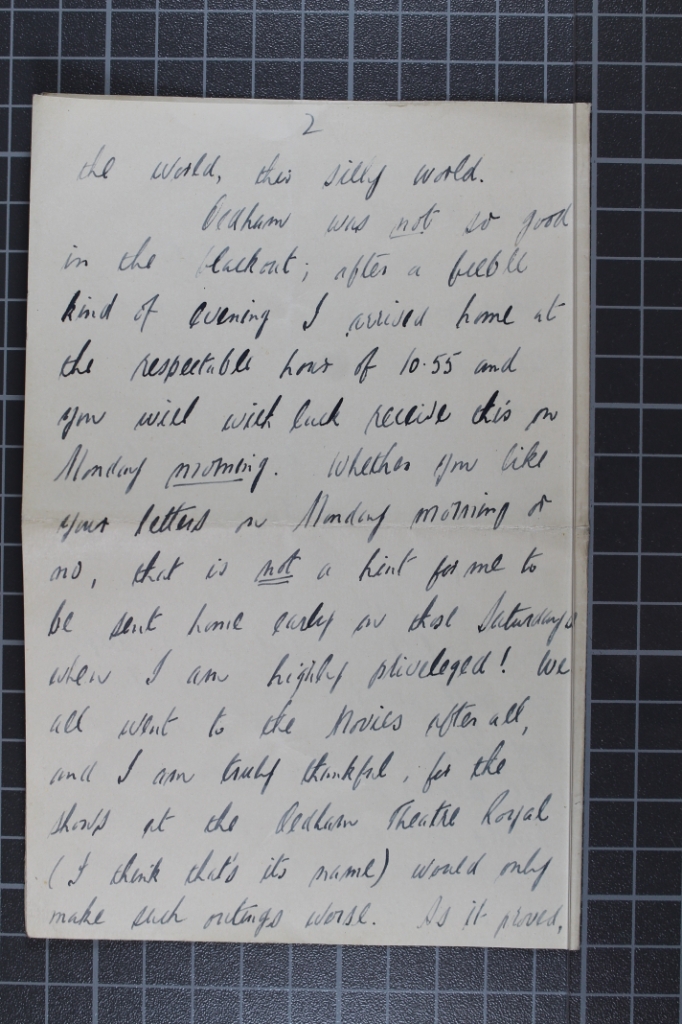 2
the world, this silly world.
Oldham was not so good
in the blackout; after a feeble
kind of evening I arrived home at
the respectable hour of 10.55 and
you will with luck receive this on
Monday morning. Whether you like
your letters on Monday morning or
no, that is not a hint for me to
be sent home early on those Saturdays
when I am highly priveleged! We
all went to the Movies after all,
and I am truly thankful, for the
shows at the Oldham Theatre Royal
(I think that's its name) would only
make such outings worse. As it proved,